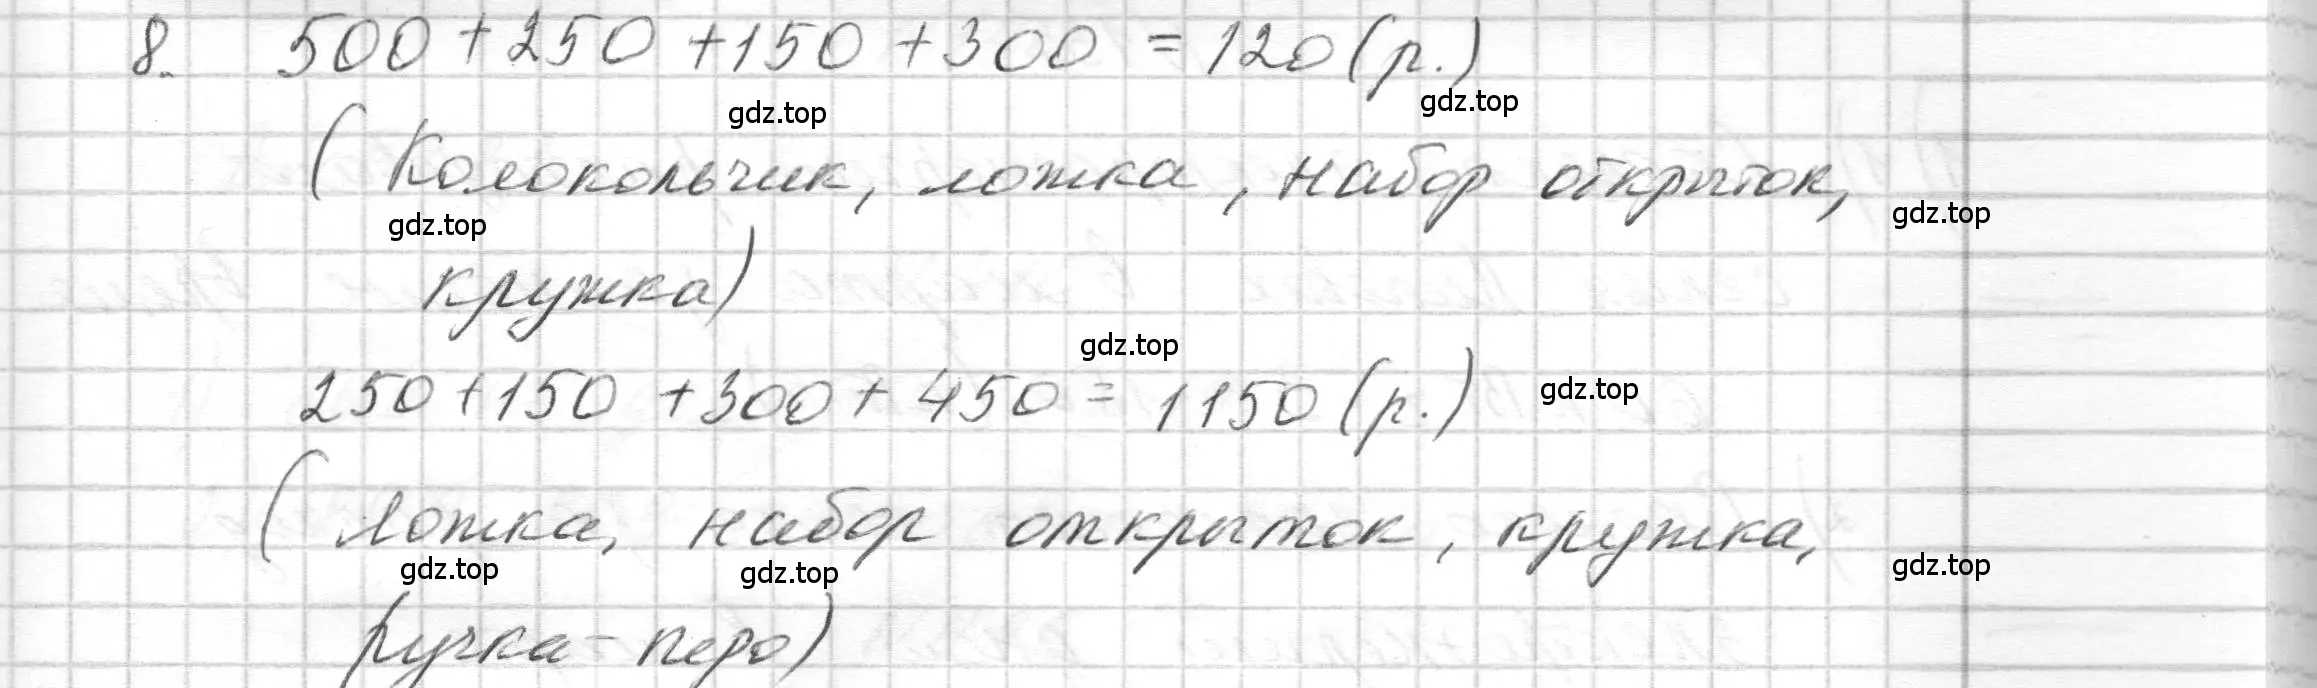 8. 500 + 250 + 150 + 300 = 120 (р.)
gdz.top gdz.top
(Колокольчик, ложка, набор открыток,
gdz.top gdz.top
кружка)
gdz.top
250 + 150 + 300 + 450 = 1150 (р.)
gdz.top
(ложка, набор открыток, кружка,
gdz.top gdz.top gdz.top
ручка-перо)